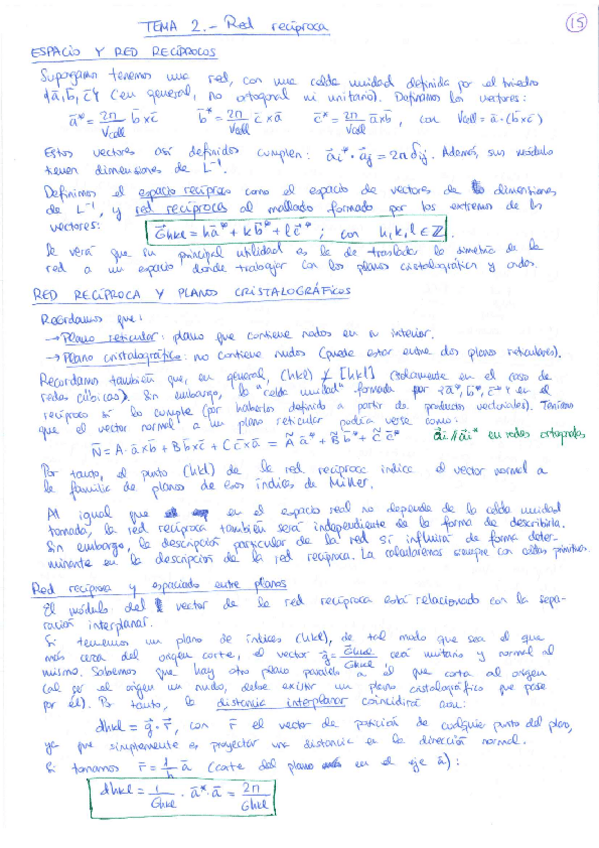 15
TEMA 2.- Red recíproca
ESPACIO Y RED RECÍPROCOS
Supongamos tenemos una red, con una celda unidad definida por el triedro
{ā, b̄, c̄} (en general, no ortogonal ni unitario). Definamos los vectores:
ā* = 2π/Vcell b̄×c̄ b̄* = 2π/Vcell c̄×ā c̄* = 2π/Vcell ā×b̄, con Vcell = ā·(b̄×c̄)
Estos vectores así definidos cumplen: āi*·āj = 2πδij. Además, sus módulo
tienen dimensiones de L⁻¹.
Definimos el espacio recíproco como el espacio de vectores de dimensiones
de L⁻¹, y red recíproca al mallado formado por los extremos de los
vectores: Ḡhkl = hā* + kb̄* + lc̄*; con h,k,l ∈ ℤ.
Se verá que su principal utilidad es la de trasladar la simetría de la
red a un espacio donde trabajar con los planos cristalográficos y ondas.
RED RECÍPROCA Y PLANOS CRISTALOGRÁFICOS
Recordamos que:
→ Plano reticular: plano que contiene nodos en su interior.
→ Plano cristalográfico: no contiene nudos (puede estar entre dos planos reticulares).
Recordamos también que, en general, (hkl) ⊥̸ [hkl] (solamente en el caso de
redes cúbicas). Sin embargo, la "celda unidad" formada por {ā*, b̄*, c̄*} en el
recíproco sí lo cumple (por haberlos definido a partir de productos vectoriales). Teníamos
que el vector normal a un plano reticular podía verse como:
N̄ = A·ā×b̄ + B b̄×c̄ + C c̄×ā = Ã ā* + B̃ b̄* + C̃ c̄* āi ∥ āi* en redes ortogonales
Por tanto, el punto (hkl) de la red recíproca indica el vector normal a
la familia de planos de esos índices de Miller.
Al igual que en el espacio real no depende de la celda unidad
tomada, la red recíproca también será independiente de la forma de describirla.
Sin embargo, la descripción particular de la red sí influirá de forma deter-
minante en la descripción de la red recíproca. La calcularemos siempre con celdas primitivas.
Red recíproca y espaciado entre planos
El módulo del vector de la red recíproca está relacionado con la sepa-
ración interplanar.
Si tenemos un plano de índices (hkl), de tal modo que sea el que
más cerca del origen corte, el vector ḡ = Ḡhkl/Ghkl será unitario y normal al
mismo. Sabemos que hay otro plano paralelo a él que corta al origen
(al ser el origen un nudo, debe existir un plano cristalográfico que pase
por él). Por tanto, la distancia interplanar coincidirá con:
dhkl = ḡ·r̄, con r̄ el vector de posición de cualquier punto del plano,
ya que simplemente es proyectar una distancia en la dirección normal.
Si tomamos r̄ = 1/h ā (corte del plano en el eje ā):
dhkl = 1/Ghkl · ā*·ā = 2π/Ghkl